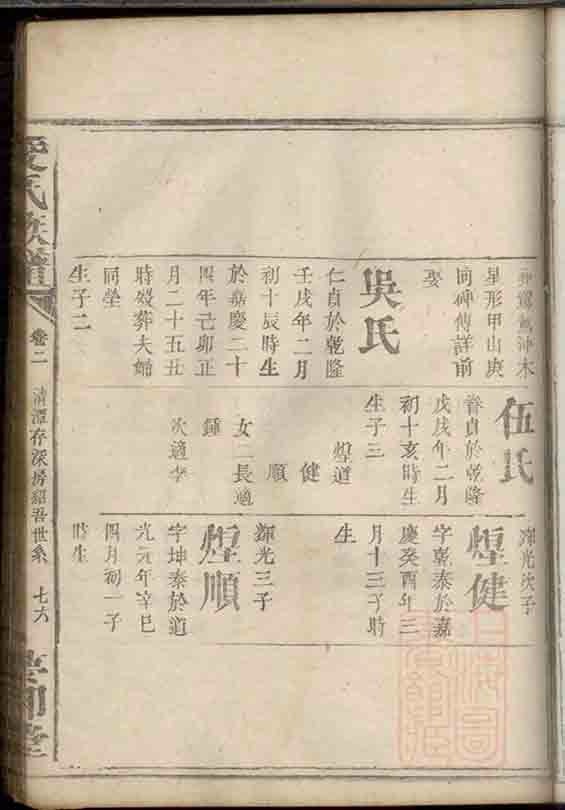 葬鴛鴦冲木
星形甲山庚
向碑傳詳前
娶
吳氏
仁貞於乾隆
壬戌年二月
初十辰時生
於嘉慶二十
四年己卯正
月二十五丑
時歿葬夫婦
同塋
生子二
伍氏
眷貞於乾隆
戊戌年二月
初十亥時生
生子三
煌道
健
順
女二長適
鍾
次適李
輝光次子
煌健
字乾泰於嘉
慶癸酉年三
月十三子時
生
輝光三子
煌順
字坤泰於道
光元年辛巳
四月初一子
時生
氏族譜
卷二
清潭存深房紹吾世系
七六